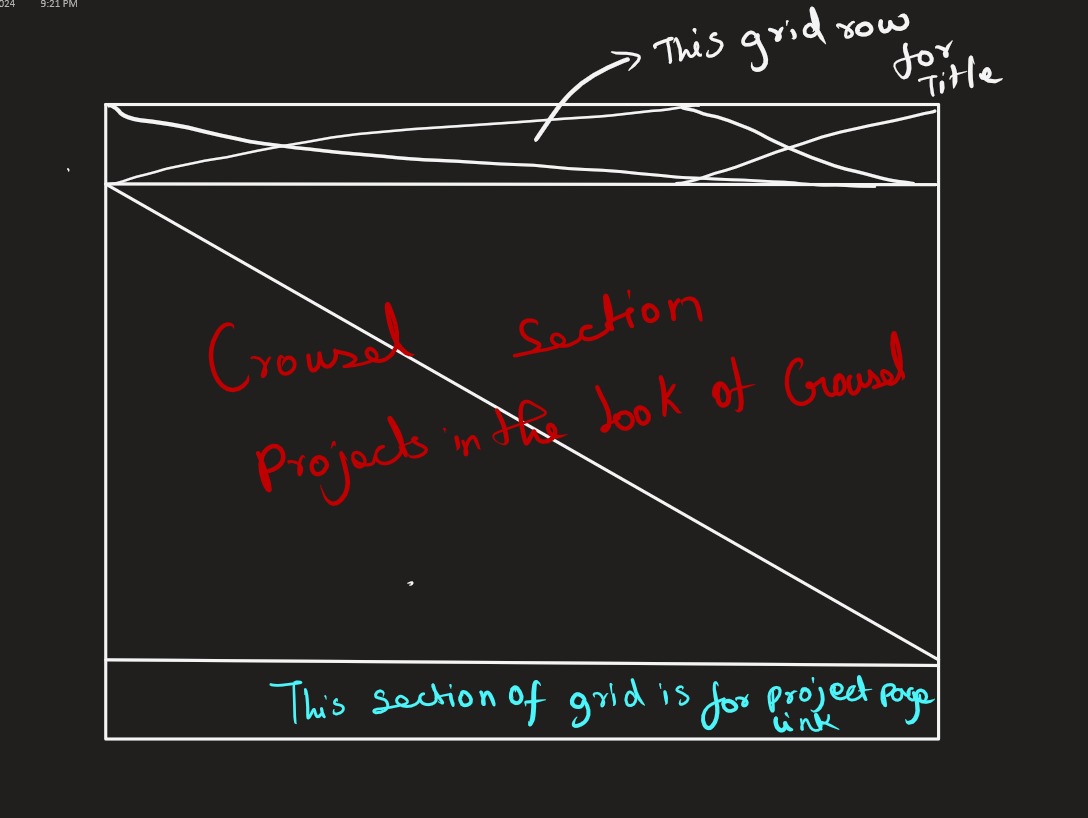 024 9:21 PM
This grid row
for
Title
Crousel Section
Projects in the look of Crousel
This section of grid is for project page
link